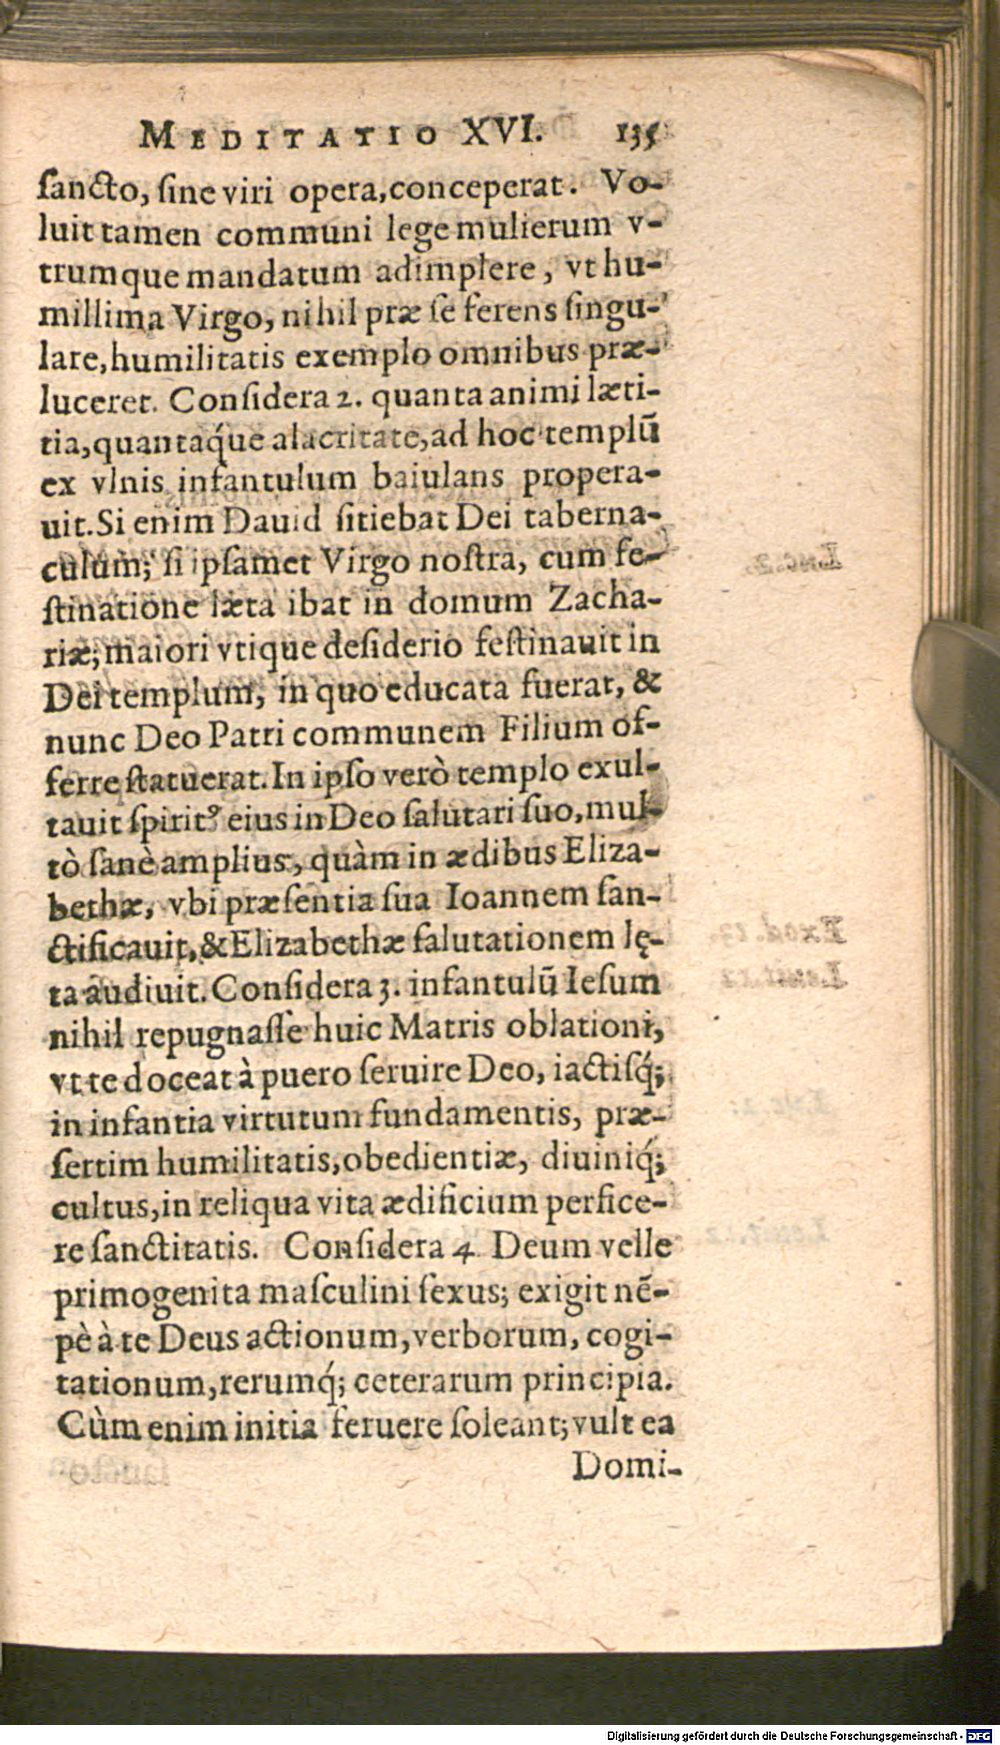 MEDITATIO XVI. 135
sancto, sine viri opera, conceperat. Vo-
luit tamen communi lege mulierum v-
trumque mandatum adimplere, vt hu-
millima Virgo, nihil præ se ferens singu-
lare, humilitatis exemplo omnibus præ-
luceret. Considera 2. quanta animi læti-
tia, quantaq́ue alacritate, ad hoc templũ
ex vlnis infantulum baiulans propera-
uit. Si enim Dauid sitiebat Dei taberna-
culum; si ipsamet Virgo nostra, cum fe-
stinatione læta ibat in domum Zacha-
riæ; maiori vtique desiderio festinauit in
Dei templum, in quo educata fuerat, &
nunc Deo Patri communem Filium of-
ferre statuerat. In ipso verò templo exul-
tauit spiritꝰ eius in Deo salutari suo, mul-
tò sanè amplius, quàm in ædibus Eliza-
bethæ, vbi præsentia sua Ioannem san-
ctificauit, & Elizabethæ salutationem lę-
ta audiuit. Considera 3. infantulũ Iesum
nihil repugnasse huic Matris oblationi,
vt te doceat à puero seruire Deo, iactisq́;
in infantia virtutum fundamentis, præ-
sertim humilitatis, obedientiæ, diuiniq́;
cultus, in reliqua vita ædificium perfice-
re sanctitatis. Considera 4. Deum velle
primogenita masculini sexus; exigit nẽ-
pè à te Deus actionum, verborum, cogi-
tationum, rerumq́; ceterarum principia.
Cùm enim initia feruere soleant; vult ea
Domi-
Digitalisierung gefördert durch die Deutsche Forschungsgemeinschaft - DFG